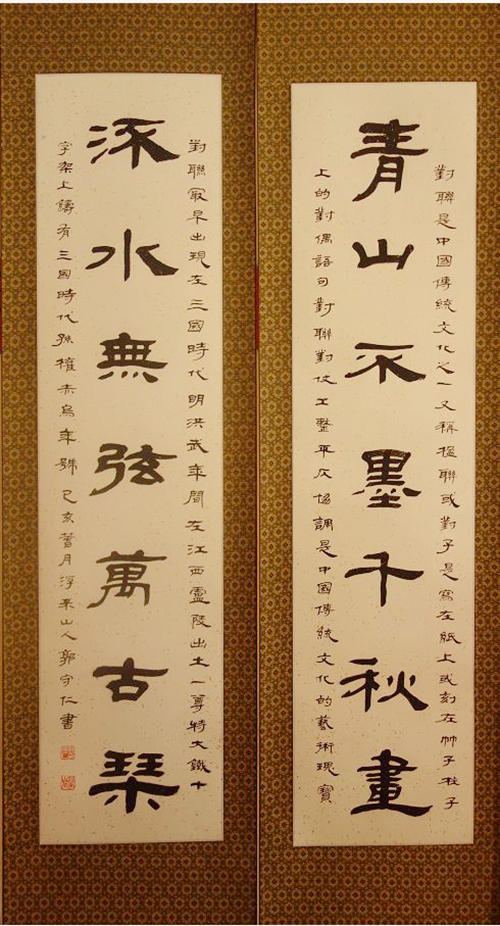 對聯是中國傳統文化之一又稱楹聯或對子是寫在紙上或刻在竹子柱子
青山不墨千秋畫
上的對偶語句對聯對仗工整平仄協調是中國傳統文化的藝術瑰寶
對聯最早出現在三國時代明洪武年間在江西廬陵出土一尊特大鐵十
流水無弦萬古琴
字架上鑄有三國時代孫權赤烏年號 己亥月浮來山人郭守仁書